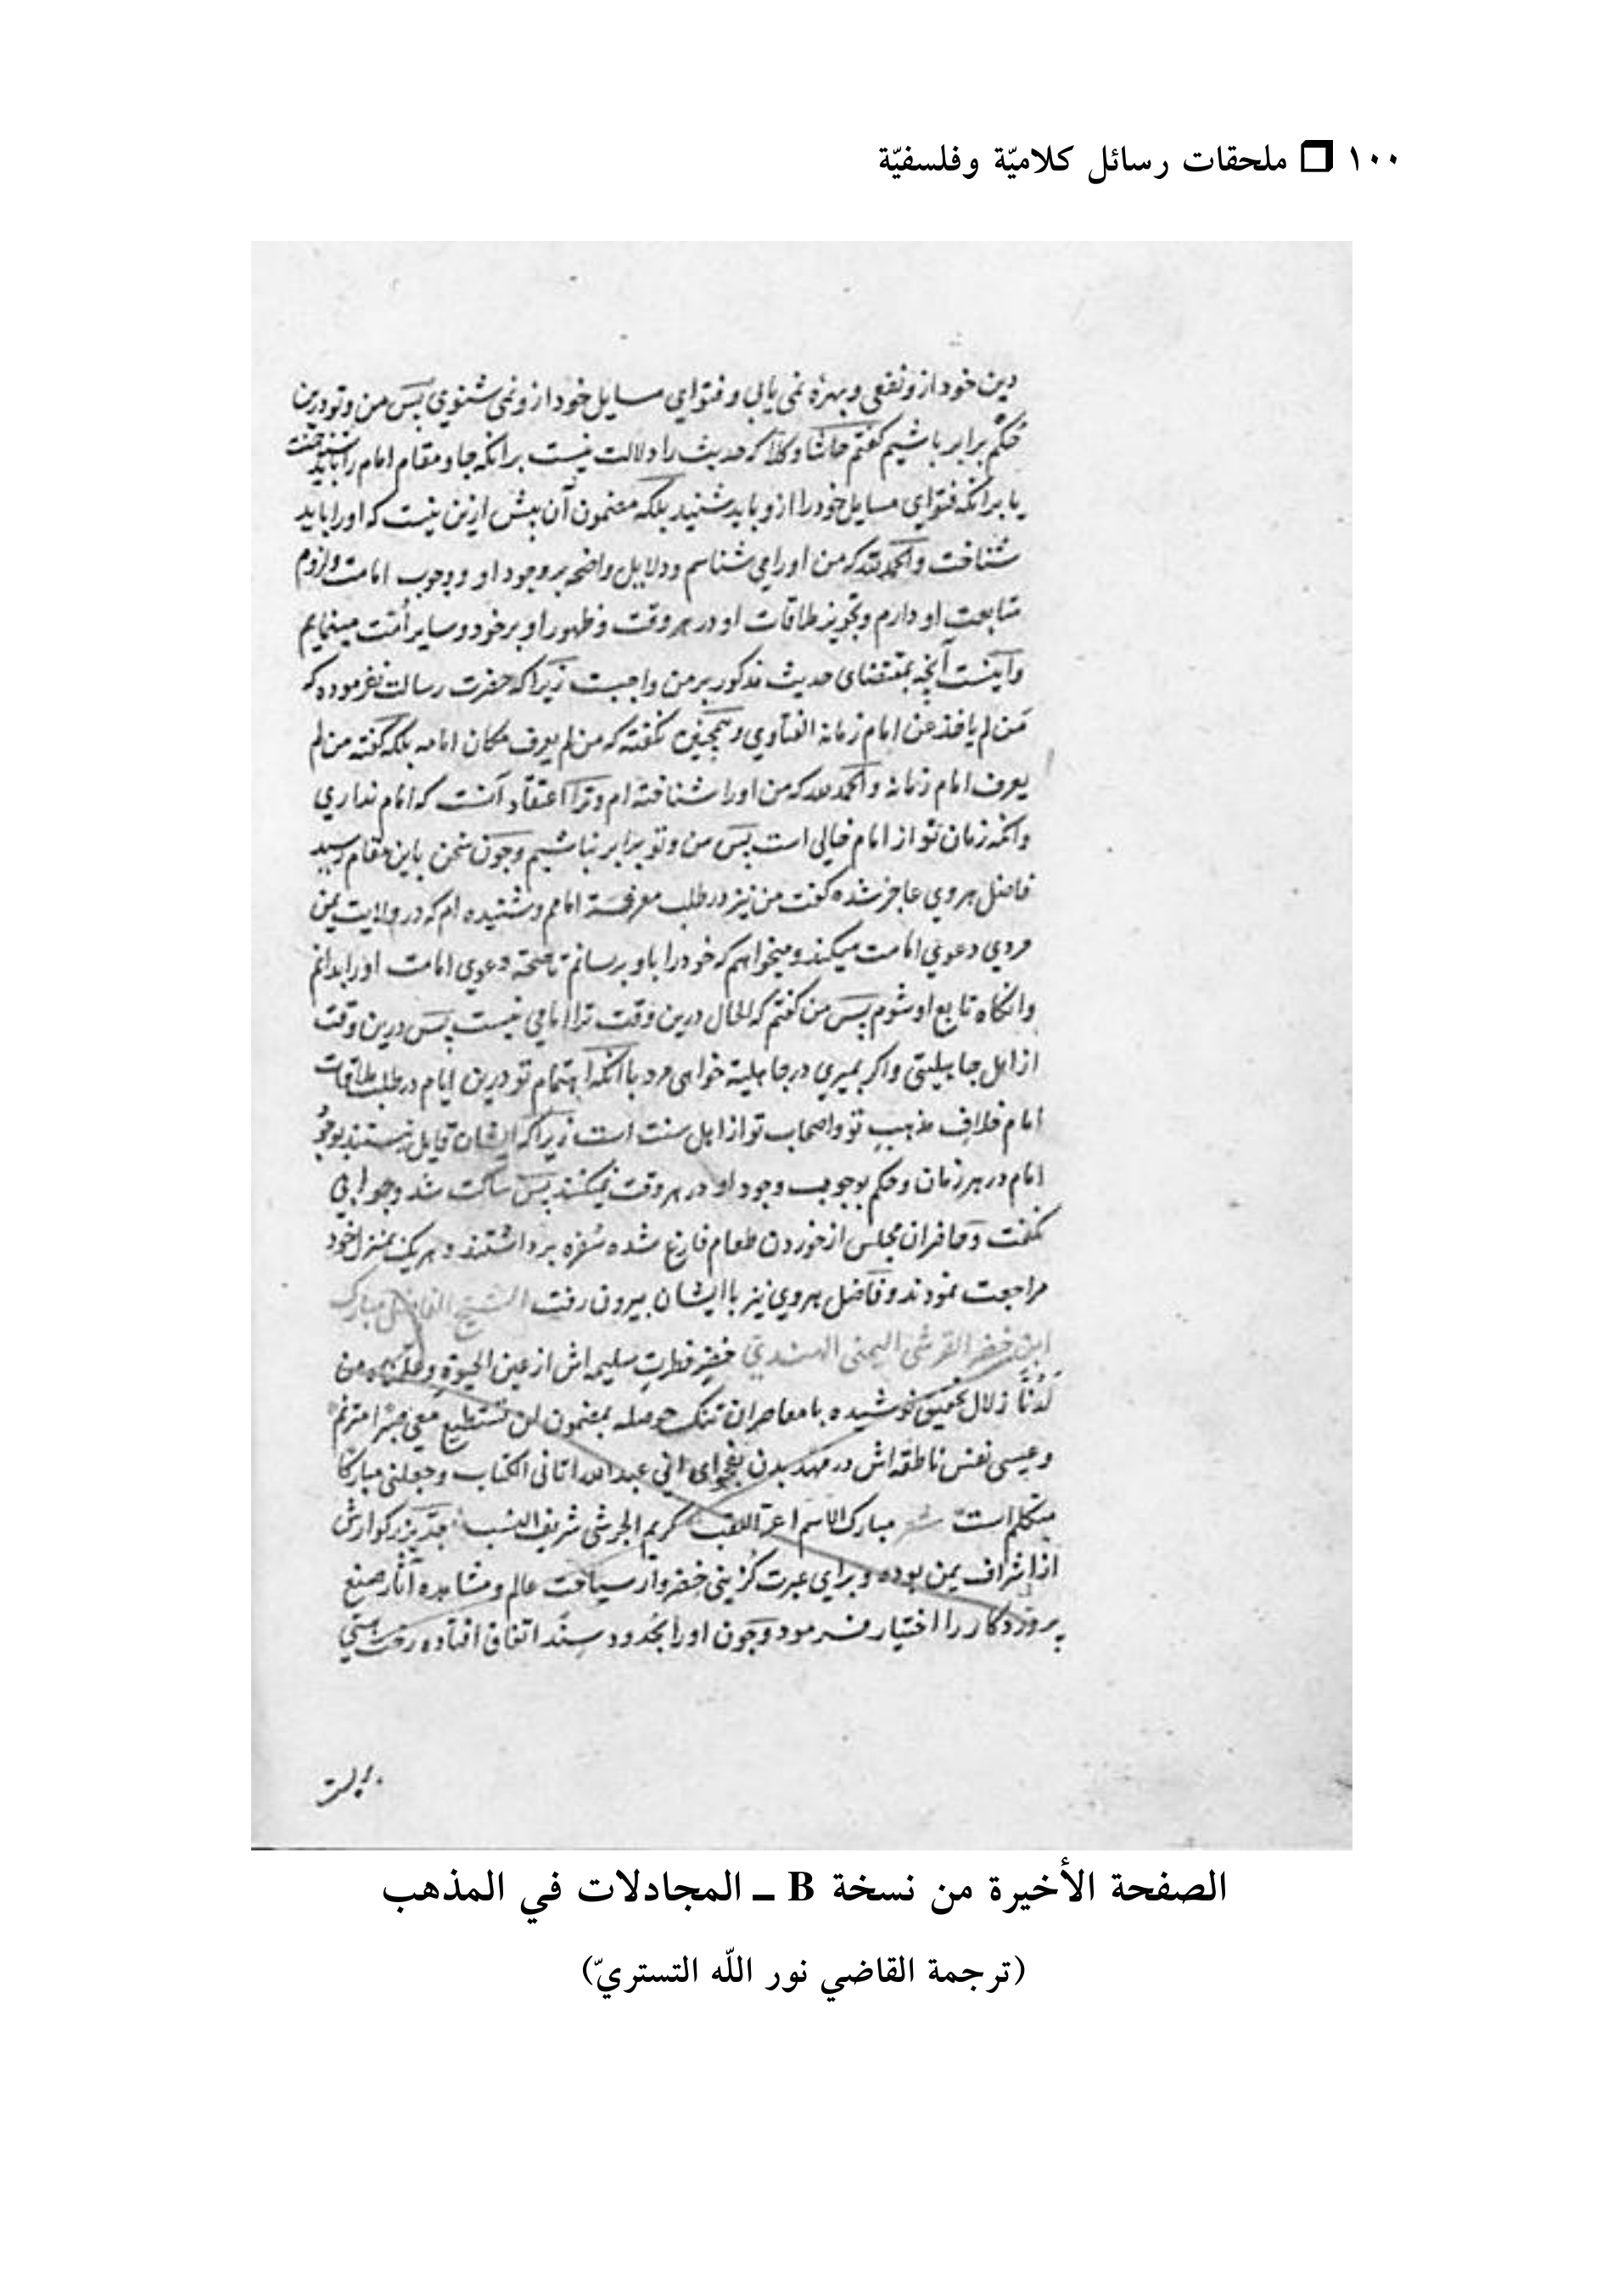 ١٠٠ ❒ ملحقات رسائل كلاميّة وفلسفيّة
دین خود ازو نفعی و بهرهٔ نمی یابی و فتوای مسایل خود ازو نمی شنوی پس من و تو درین
حکم برابر باشیم کفتم حاشا و کلا که حدیث را دلالت نیست برانکه جا و مقام امام را باید
یا برانکه فتوای مسایل خود را ازو باید شنید بلکه مضمون آن بیش ازین نیست که او را باید
شناخت والحمدلله که من او را می شناسم و دلایل واضحه بر وجود او و وجوب امامت و لزوم
متابعت او دارم و تجویز ملاقات او در هر وقت و ظهور او بر خود و سایر امت مینمایم
و اینست آنچه بمقتضای حدیث مذکور بر من واجبست زیرا که حضرت رسالت نفرموده که
من لم یاخذ عن امام زمانه الفتاوی و همچنین نکفته که من لم یعرف مکان امامه بلکه کفته من لم
یعرف امام زمانه والحمدلله که من او را شناخته ام و ترا اعتقاد آنست که امام نداری
و انکه زمان تو از امام خالی است پس من و تو برابر نباشیم و چون سخن باین مقام رسید
فاضل هروی عاجز شده کفت من نیز در طلب معرفة امامم و شنیده ام که در ولایت یمن
مردی دعوی امامت میکند و میخواهم که خود را باو برسانم تا صحة دعوی امامت او را بدانم
و انکاه تابع او شوم پس من کفتم که الحال درین وقت ترا امامی نیست پس درین وقت
از اهل جاهلیتی و اکر بمیری در جاهلیة خواهی مرد با انکه اهتمام تو درین ایام در طلب ملاقات
امام خلاف مذهب تو و اصحاب تو از اهل سنت است زیرا که ایشان قایل نیستند بوجود
امام در هر زمان و حکم بوجوب وجود او در هر وقت نمیکنند پس ساکت شد و جوابی
نکفت و حاضران مجلس از خوردن طعام فارغ شده سفره برداشتند و هر یک بمنزل خود
مراجعت نمودند و فاضل هروی نیز با ایشان بیرون رفت الشیخ الفاضل مبارک
ابن خضر القرشی الیمنی الهندی خضر فطرت سلیمه اش از عین الحیوة و علمناه من
لدنا زلال تحقیق نوشیده با معاصران تنک حوصله بمضمون لن تستطیع معی صبرا مترنم
و عیسی نفس ناطقه اش در مهد بدن بفحوای انی عبدالله اتانی الکتاب و جعلنی مبارکا
متکلم است شعر مبارک الاسم اغر اللقب کریم الجرشی شریف النسب جد بزرکوارش
از اشراف یمن بوده و برای عبرت کزینی خضروار سیاحت عالم و مشاهده آثار صنع
پروردکار را اختیار فرمود و چون او را بحدود سند اتفاق افتاده رخت هستی
الصفحة الأخيرة من نسخة B ــ المجادلات في المذهب
(ترجمة القاضي نور اللّه التستريّ)